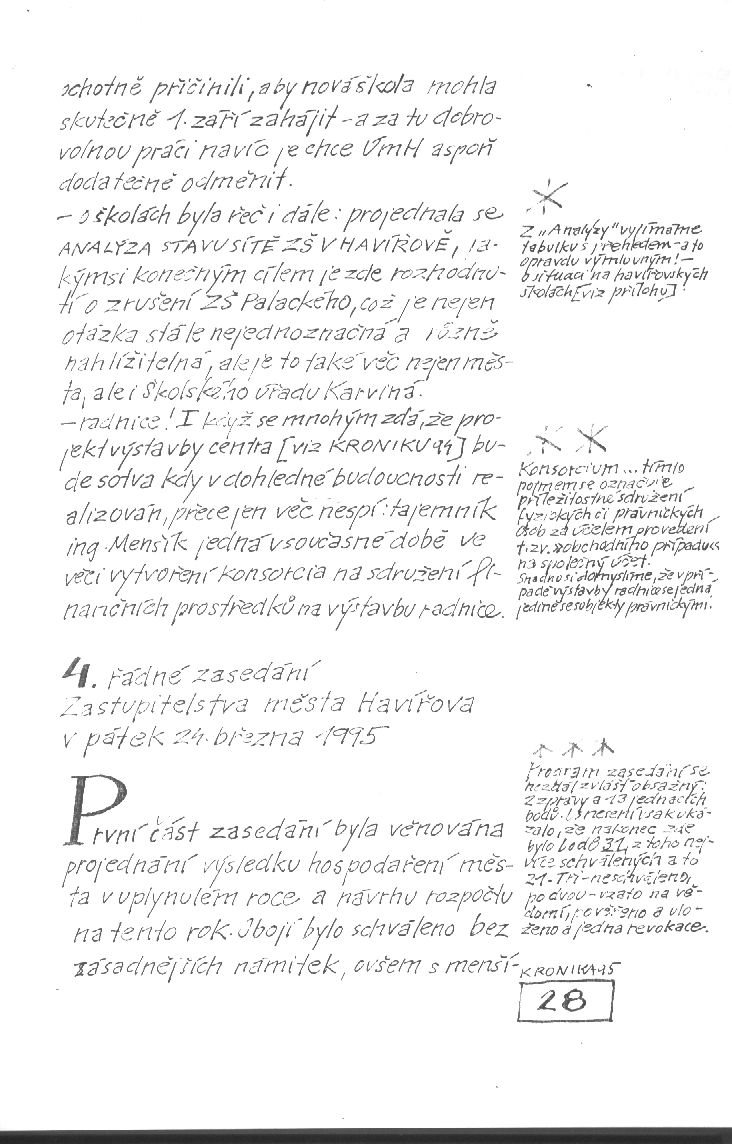 ochotně přičinili, aby nová škola mohla
skutečně 1. září zahájit – a za tu dobro-
volnou práci navíc je chce ÚmH aspoň
dodatečně odměnit.
– o školách byla řeč i dále: projednala se
ANALÝZA STAVU SÍTĚ ZŠ V HAVÍŘOVĚ, ja-
kýmsi konečným cílem je zde rozhodnu-
tí o zrušení ZŠ Palackého, což je nejen
otázka stále nejednoznačná a různě
nahlížitelná, ale je to také věc nejen měs-
ta, ale i Školského úřadu Karviná.
– radnice! I když se mnohým zdá, že pro-
jekt výstavby centra [viz KRONIKU 94] bu-
de sotva kdy v dohledné budoucnosti re-
alizován, přece jen věc nespí: tajemník
ing. Menšík jedná v současné době ve
věci vytvoření konsorcia na sdružení fi-
nančních prostředků na výstavbu radnice.
4. řádné zasedání
Zastupitelstva města Havířova
v pátek 24. března 1995
První část zasedání byla věnována
projednání výsledku hospodaření měs-
ta v uplynulém roce a návrhu rozpočtu
na tento rok. Obojí bylo schváleno bez
zásadnějších námitek, ovšem s menší-
*
Z „Analýzy" vyjímáme
tabulku s přehledem – a to
opravdu výmluvným! –
o situaci na havířovských
školách [viz přílohy]!
* *
Konsorcium ... tímto
pojmem se označuje
příležitostné sdružení
fyzických či právnických
osob za účelem provedení
t.zv. »obchodního případu«
na společný účet.
Snadno si domyslíme, že v pří-
padě výstavby radnice se jedná
jedině se subjekty právnickými.
* * *
Program zasedání se
nezdál zvlášť obsažný:
2 zprávy a 13 jednacích
bodů. Usnesení však uká-
zalo, že nakonec zde
bylo bodů 31, z toho nej-
více schválených a to
21. Tři – neschváleno,
po dvou – vzato na vě-
domí, pověřeno a ulo-
ženo a jedna revokace.
KRONIKA 95
28